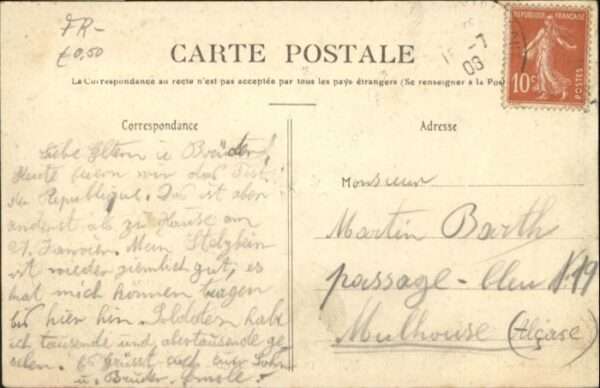 FR-
€0,50
CARTE POSTALE
La Correspondance au recto n'est pas acceptée par tous les pays étrangers (Se renseigner à la Pos
REPUBLIQUE FRANÇAISE
10c
POSTES
-7
08
Correspondance
Liebe Eltern u Brüder,
Heute feiern wir das Fest
der Republique. Das ist aber
anderst als zu Hause am
27. Januar. Mein
ist wieder ziemlich gut, es
hat mich können tragen
bis hier hin. Soldaten habe
ich tausende und abertausende ge
sehen. Es grüsst euch euer Sohn
u. Bruder
Adresse
Monsieur
Martin Barth
passage - bleu N 19
Mulhouse (Alçace)